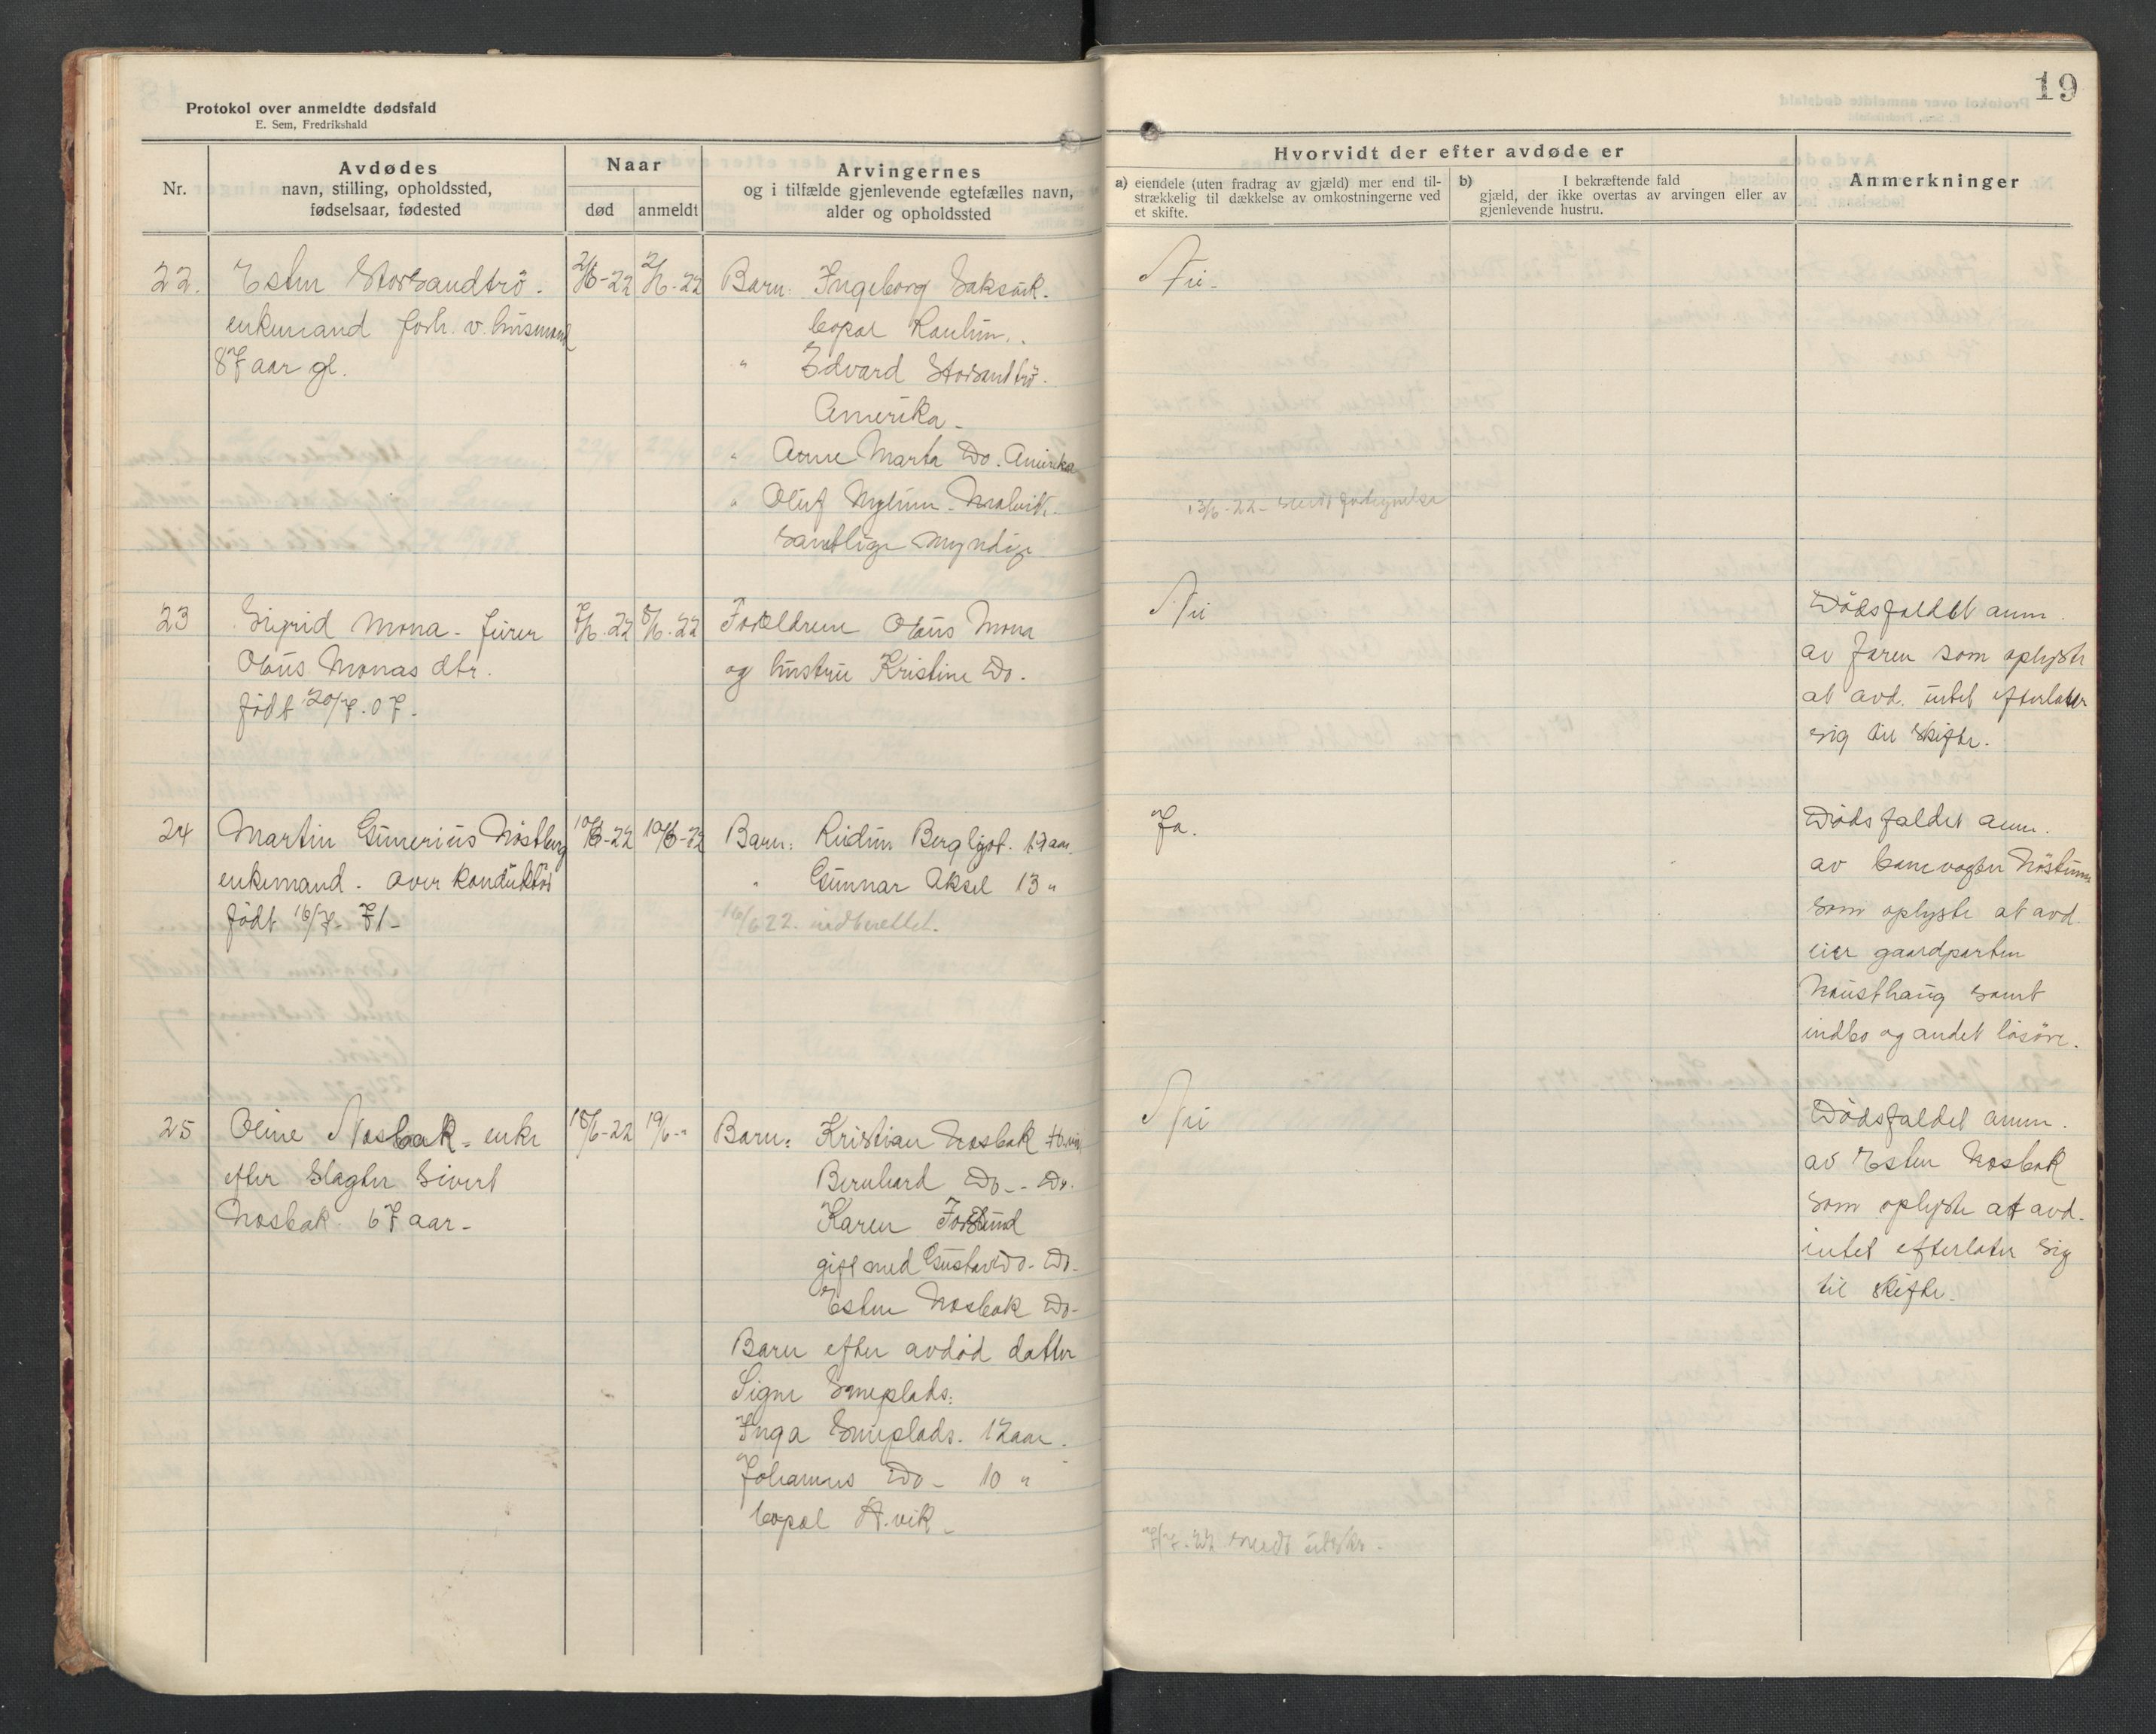 19
Protokol over anmeldte dødsfald
E. Sem, Fredrikshald
Nr.
Avdødes
navn, stilling, opholdssted,
fødselsaar, fødested
Naar
død
anmeldt
Arvingernes
og i tilfælde gjenlevende egtefælles navn,
alder og opholdssted
Hvorvidt der efter avdøde er
a) eiendele (uten fradrag av gjæld) mer end til-
strækkelig til dækkelse av omkostningerne ved
et skifte.
b) I bekræftende fald
gjæld, der ikke overtas av arvingen eller av
gjenlevende hustru.
Anmerkninger
22. Esten Storsandtrö.
enkemand forh. v. husmand
87 aar gl.
2/6-22 2/6-22
Barn: Ingeborg
bopæl
" Edvard Storsandtrö.
Amerika.
" Anne Marta Do. Amerika
" Oluf Malvik.
samtlige myndige
Nei.
13/6-22 - sendt
23 Sigrid Mona - furer
Olaus Monas dtr.
født 20/7.07.
7/6.22 8/6.22
Forældrene Olaus Mona
og hustru Kristine Do.
Nei
Dødsfaldet anm.
av faren som oplyste
at avd. intet efterlater
sig til skifte.
24 Martin Gunerius
enkemand. over konduktør
født 16/7-71-
10/6-22 10/6-22
Barn: Bergliot. 17 aar.
" Gunnar Aksel 13 "
16/6 22. indberettet.
Ja.
Dødsfaldet anm.
av banevogter
som oplyste at avd.
eier gaardparten
Nousthaug samt
indbo og andet løsøre.
25 Oline Nosbak - enke
efter slagter Sivert
Nosbak. 67 aar-
18/6-22 19/6-"
Barn: Kristian Nosbak
Bernhard Do - Do.
Karen
gift med Gustav Do - Do.
Esten Nosbak Do-
Barn efter avdød datter
Signe Smeplads:
Inga Smeplads. 12 aar.
Johannes Do - 10 "
bopæl H.vik.
Nei
7/7-22 sendt utskr.
Dødsfaldet anm.
av Esten Nosbak
som oplyste at avd.
intet efterlater sig
til skifte.